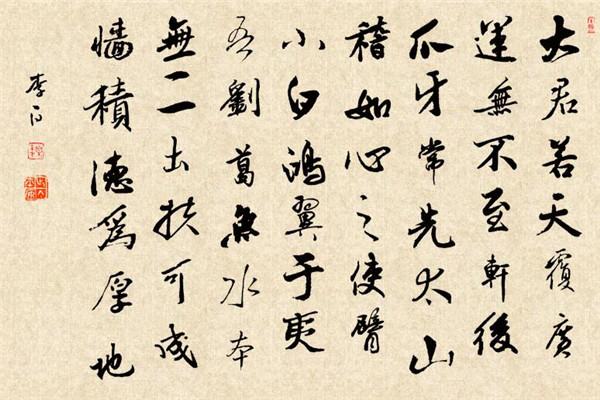 大君若天覆廣
運無不至軒後
爪牙常先太山
稽如心之使臂
小白鴻翼于夷
吾劉葛魚水本
無二土扶可成
墻積德爲厚地
李白